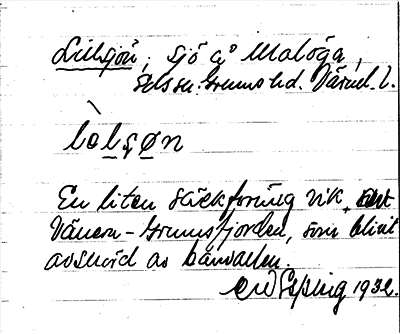 Lillsjön, sjö å Malöga,
Grums hd. Värml. l.
lo̲lşø̲n
En liten säckformig vik,
Vänern-Grumsfjorden, som blivit
avskuren av banvallen.
1932.